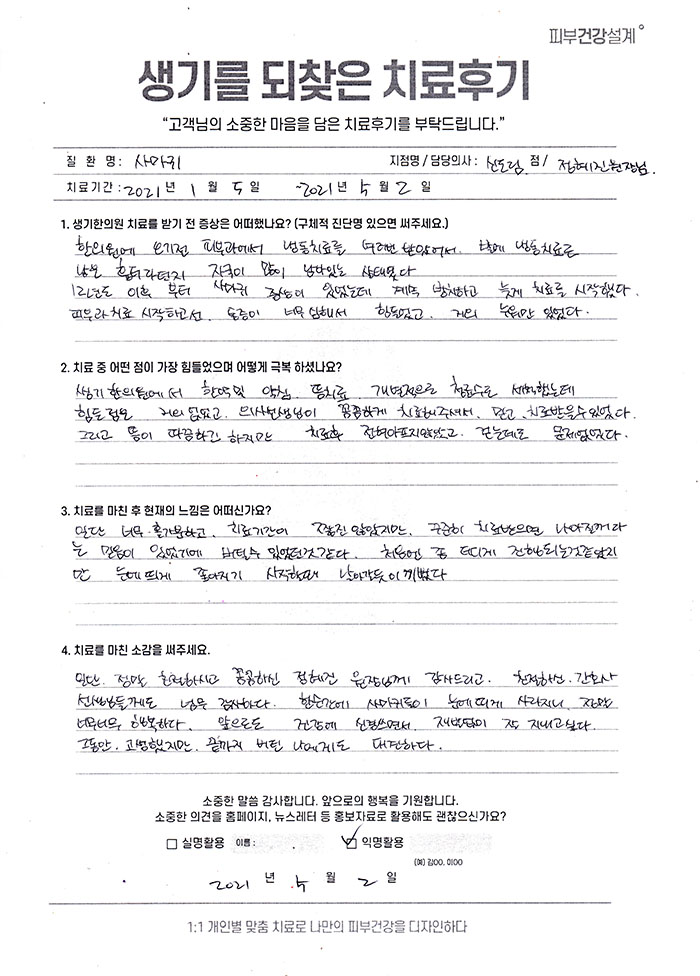 피부건강설계
생기를 되찾은 치료후기
“고객님의 소중한 마음을 담은 치료후기를 부탁드립니다.”
질 환 명 : 사마귀 지점명 / 담당의사 : 신도림 점 / 전혜진원장님.
치료기간 : 2021 년 1 월 5 일 ~2021 년 5 월 2 일
1. 생기한의원 치료를 받기 전 증상은 어떠했나요? (구체적 진단명 있으면 써주세요.)
한의원에 오기전 피부과에서 냉동치료를 여러번 받았어서. 발에 냉동치료로
남은 흉터라던지 자국이 많이 남아있는 상태였다
이후 부터 사마귀 증상이 있었는데 계속 방치하고 늦게 치료를 시작했다.
피부과치료 시작하고선 통증이 너무 심해서 힘들었고. 거의 누워만 있었다.
2. 치료 중 어떤 점이 가장 힘들었으며 어떻게 극복 하셨나요?
생기한의원에서 한약 및 약침. 뜸치료. 개인적으로 침료수로 세척했는데
힘든점은 거의 없었고. 의사선생님이 꼼꼼하게 치료해주셔서. 믿고 치료받을수있었다.
그리고 뜸이 따끔하긴 하지만 치료후 전혀아프지않았고. 걷는데도 문제없었다.
3. 치료를 마친 후 현재의 느낌은 어떠신가요?
일단 너무 홀가분하고, 치료기간이 짧진 않았지만. 꾸준히 치료받으면 나아질꺼라
는 믿음이 있었기에 버틸수 있었던것같다. 처음엔 좀 더디게 진행되는것같았지
만 눈에띄게 좋아지기 시작할때 날아갈듯이기뻤다
4. 치료를 마친 소감을 써주세요.
일단. 정말 친절하시고 꼼꼼하신 전혜진 원장님께 감사드리고. 친절하신. 간호사
선생님들께도 너무 감사하다. 한순간에 사마귀들이 눈에띄게 사라지니 정말
너무너무 행복하다. 앞으로도 건강에 신경쓰면서. 재발없이 잘 지내고싶다.
그동안. 고생했지만. 끝까지 버틴 나에게도 대견하다.
소중한 말씀 감사합니다. 앞으로의 행복을 기원합니다.
소중한 의견을 홈페이지, 뉴스레터 등 홍보자료로 활용해도 괜찮으신가요?
□ 실명활용 이름 : ☑ 익명활용
(예) 김OO, 이OO
2021 년 5 월 2 일
1:1 개인별 맞춤 치료로 나만의 피부건강을 디자인하다